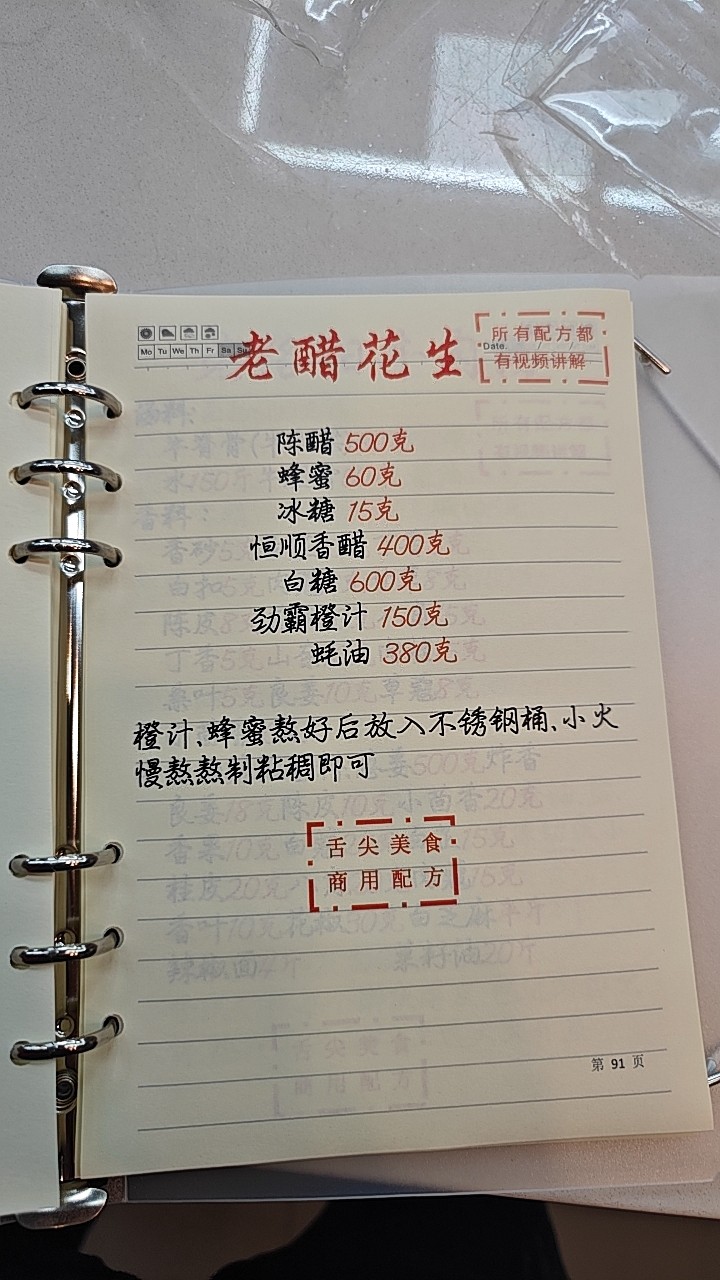 Mo Tu We Th Fr Sa Su
老醋花生
所有配方都
Date. / /
有视频讲解
陈醋 500克
蜂蜜 60克
冰糖 15克
恒顺香醋 400克
白糖 600克
劲霸橙汁 150克
蚝油 380克
橙汁、蜂蜜熬好后放入不锈钢桶、小火
慢熬熬制粘稠即可
舌尖美食
商用配方
第 91 页